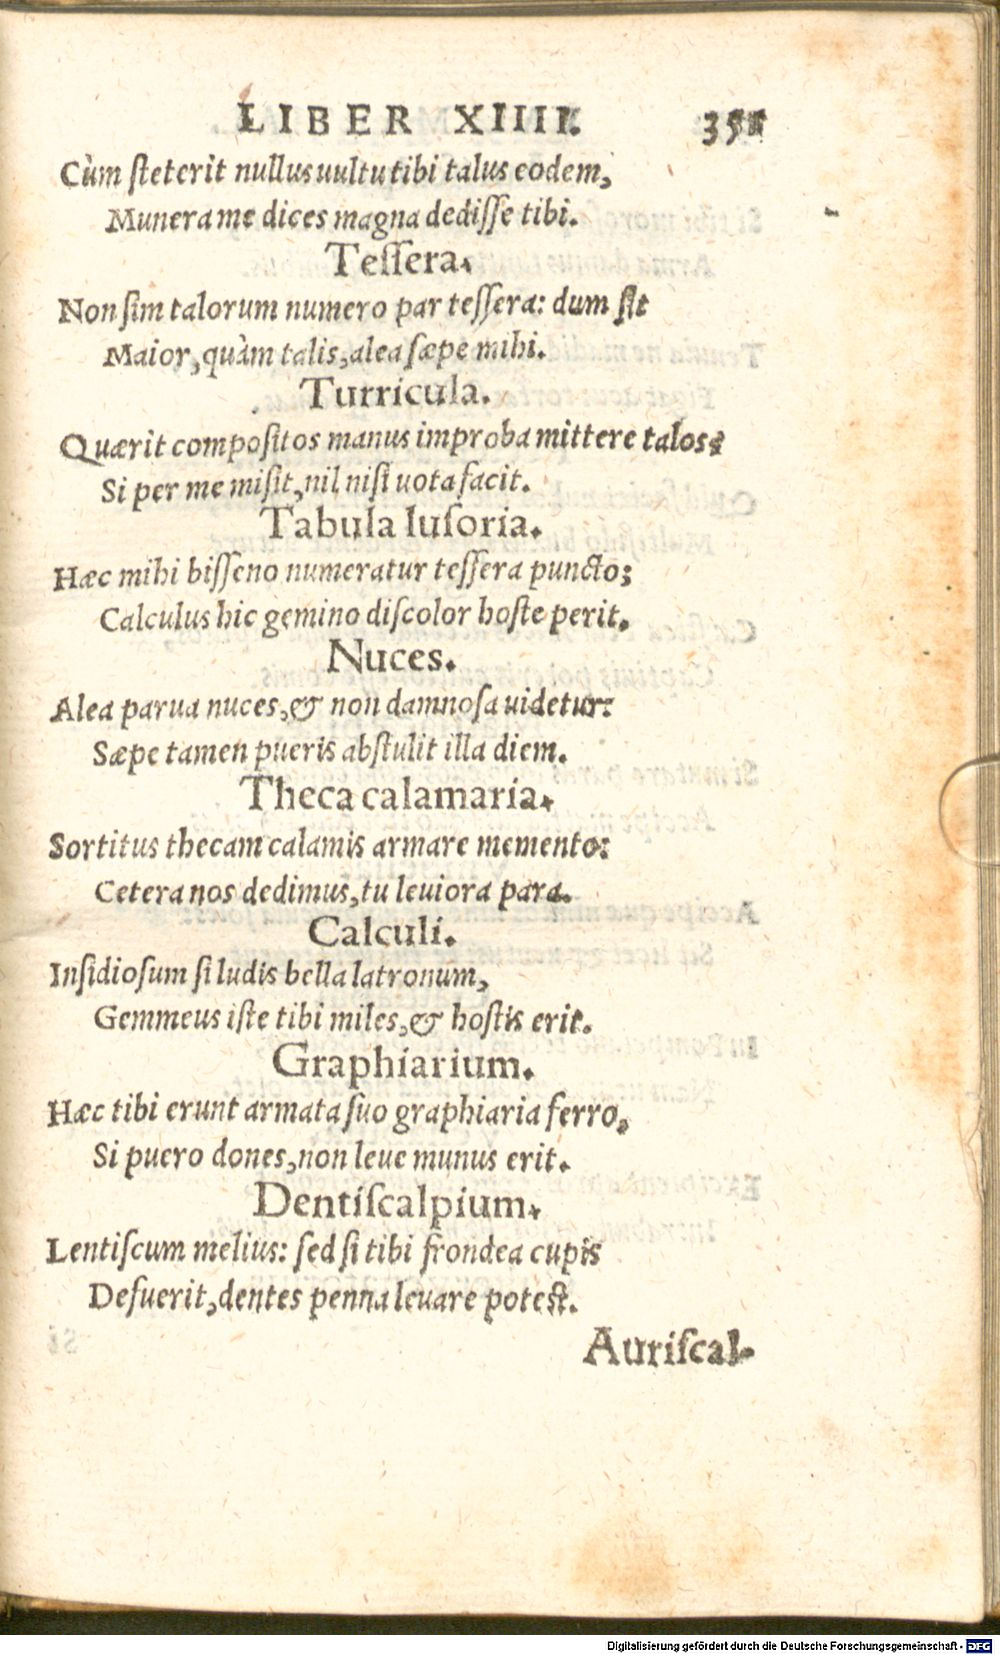 LIBER XIIII. 351
Cùm ſteterit nullus uultu tibi talus eodem,
Munera me dices magna dediſſe tibi.
Teſſera.
Non ſim talorum numero par teſſera: dum ſit
Maior, quàm talis, alea ſæpe mihi.
Turricula.
Quærit compoſitos manus improba mittere talos:
Si per me miſit, nil niſi uota facit.
Tabula luſoria.
Hæc mihi biſſeno numeratur teſſera puncto;
Calculus hic gemino diſcolor hoſte perit.
Nuces.
Alea parua nuces, & non damnoſa uidetur:
Sæpe tamen pueris abſtulit illa diem.
Theca calamaria.
Sortitus thecam calamis armare memento:
Cetera nos dedimus, tu leuiora para.
Calculi.
Inſidioſum ſi ludis bella latronum,
Gemmeus iſte tibi miles, & hoſtis erit.
Graphiarium.
Hæc tibi erunt armata ſuo graphiaria ferro,
Si puero dones, non leue munus erit.
Dentiſcalpium.
Lentiſcum melius: ſed ſi tibi frondea cupis
Defuerit, dentes penna leuare poteſt.
Auriſcal-
Digitalisierung gefördert durch die Deutsche Forschungsgemeinschaft - DFG